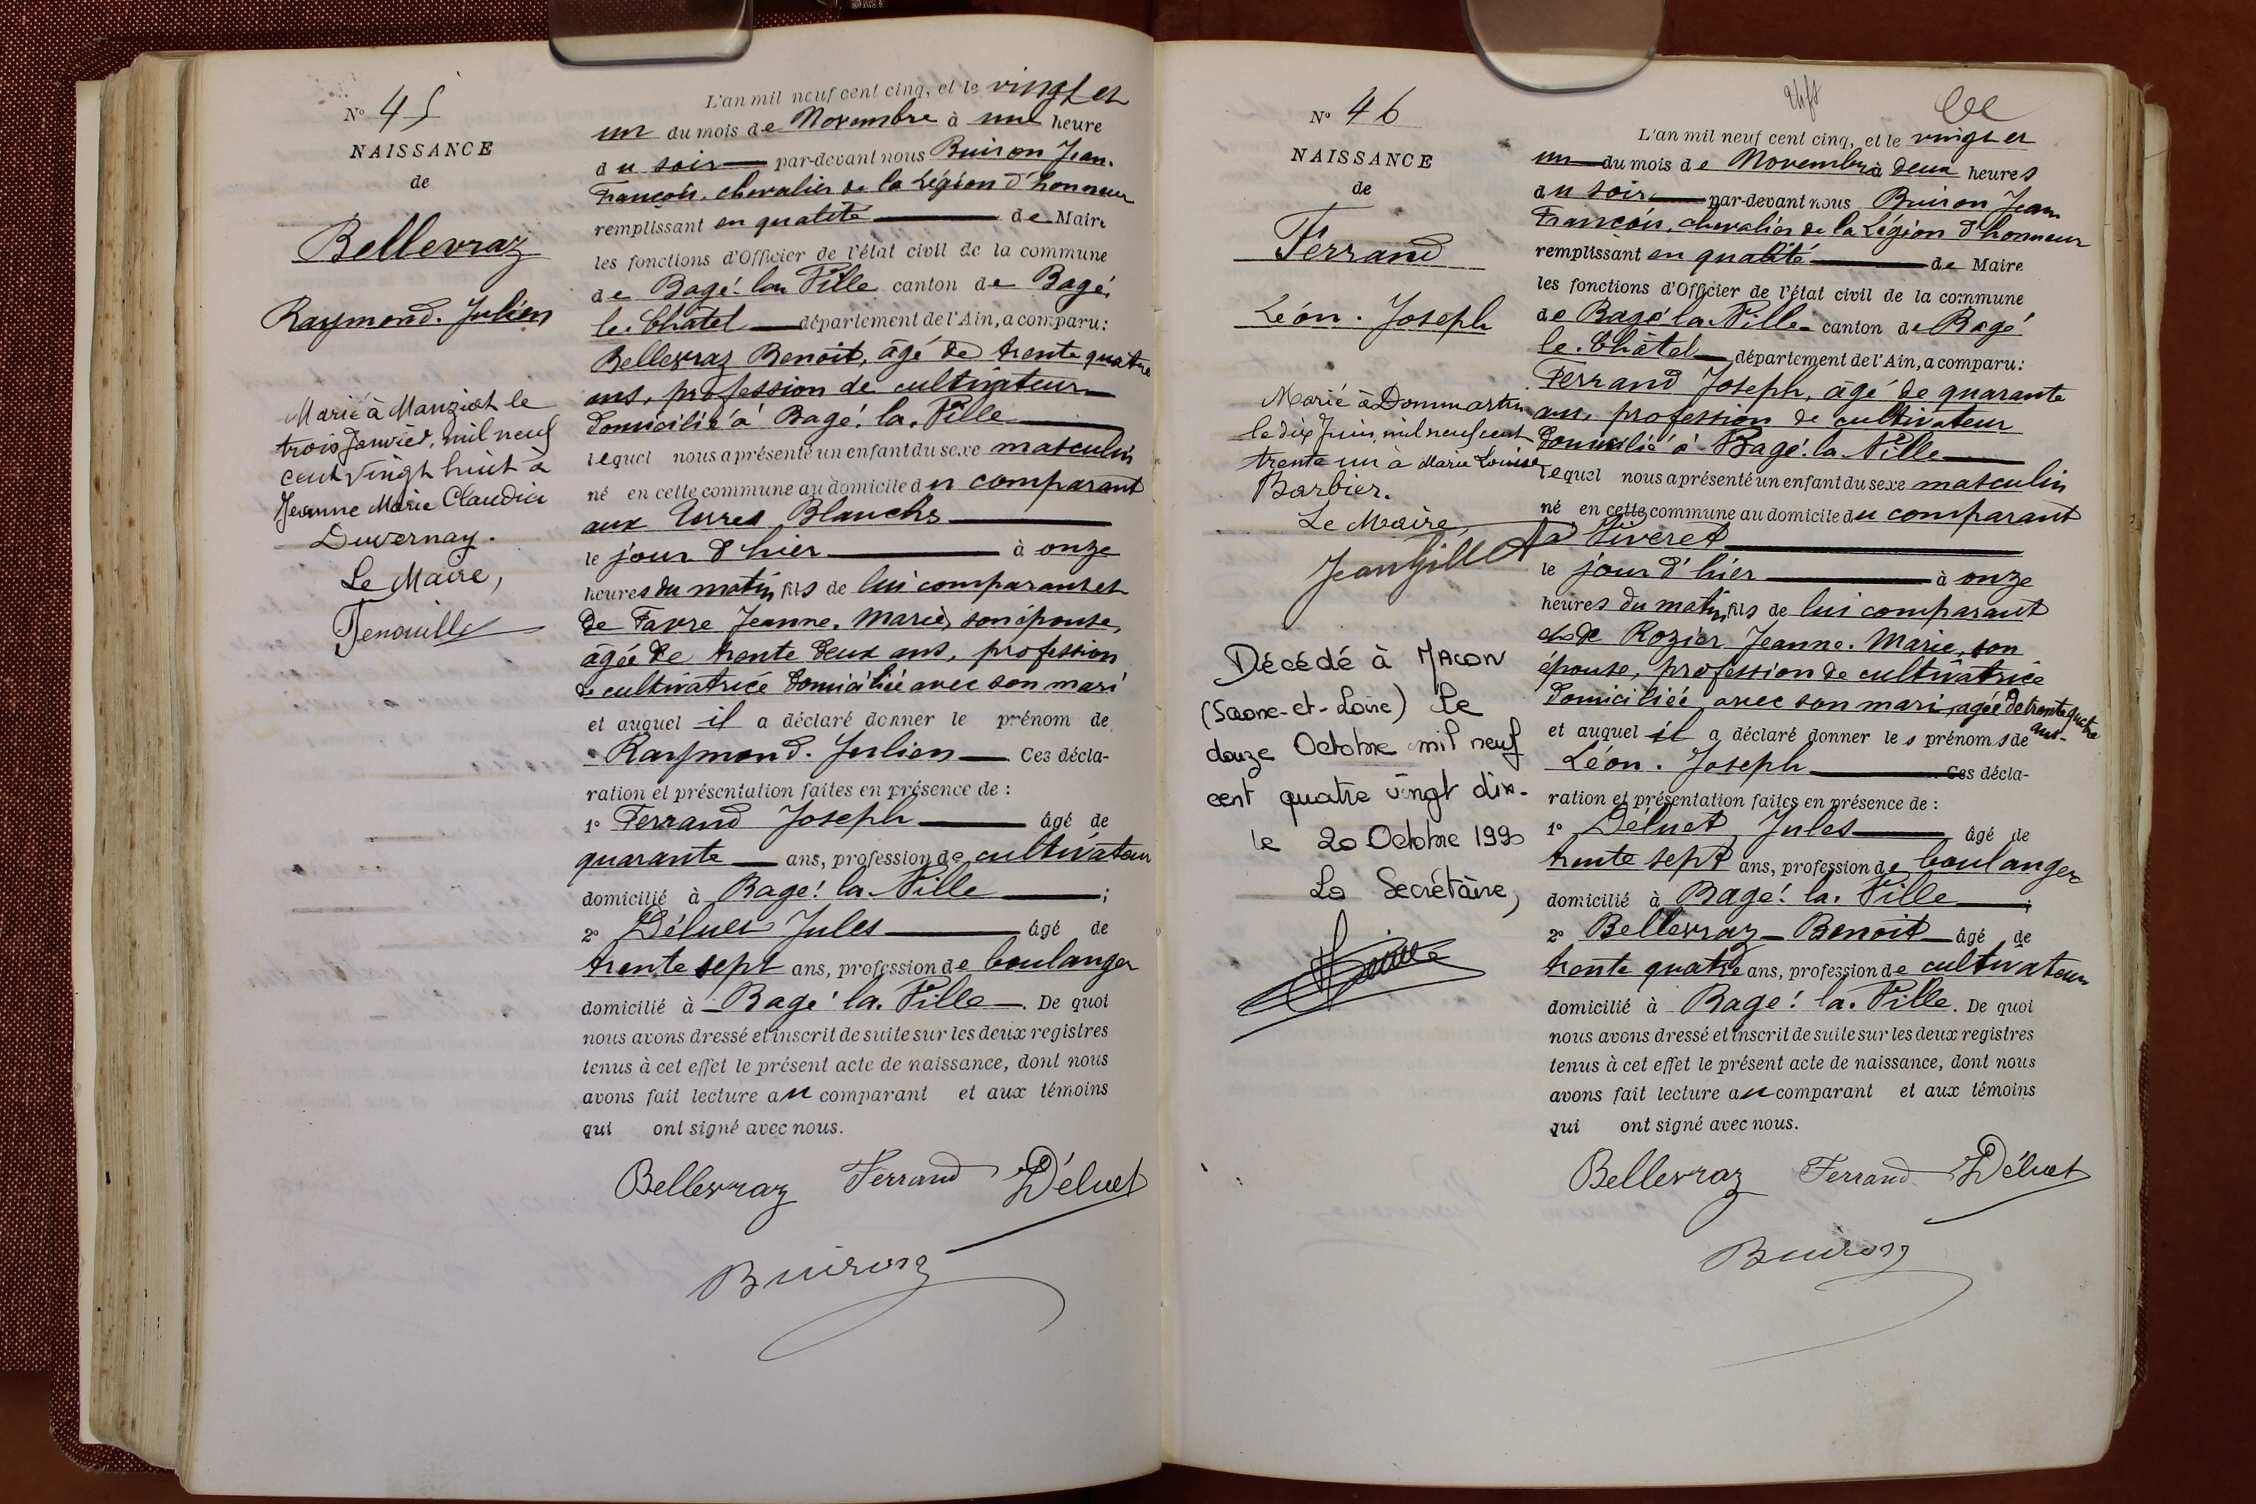 N° 45
NAISSANCE
de
Bellevraz
Raymond. Julien
Marié à Manziat le
trois Janvier, mil neuf
cent vingt huit à
Jeanne Marie Claudia
Duvernay.
Le Maire,
L'an mil neuf cent cinq, et le vingt et
un du mois de Novembre à une heure
du soir par-devant nous Buiron Jean.
François, chevalier de la Légion d'honneur
remplissant en qualité de Maire
les fonctions d'Officier de l'état civil de la commune
de Bagé. la Ville canton de Bagé.
le. Châtel département de l'Ain, a comparu:
Bellevraz Benoit, âgé de trente quatre
ans, profession de cultivateur
domicilié à Bagé. la. Ville
lequel nous a présenté un enfant du sexe masculin
né en cette commune au domicile du comparant
aux Terres Blanches
le jour d'hier à onze
heures du matin fils de lui comparant et
de Favre Jeanne. Marie, son épouse,
âgée de trente deux ans, profession
de cultivatrice domiciliée avec son mari
et auquel il a déclaré donner le prénom de
Raymond. Julien Ces décla-
ration et présentation faites en présence de :
1° Ferrand Joseph âgé de
quarante ans, profession de cultivateur
domicilié à Bagé. la. Ville ;
2° Déluet Jules âgé de
trente sept ans, profession de boulanger
domicilié à Bagé. la. Ville . De quoi
nous avons dressé et inscrit de suite sur les deux registres
tenus à cet effet le présent acte de naissance, dont nous
avons fait lecture au comparant et aux témoins
qui ont signé avec nous.
Bellevraz Ferrand Déluet
Buiron
N° 46
NAISSANCE
de
Ferrand
Léon. Joseph
Marié à Dommartin
le dix Juin, mil neuf cent
trente un à Marie Louise
Barbier.
Le Maire,
Décédé à MACON
(Saone-et-Loire) le
douze Octobre mil neuf
cent quatre vingt dix.
le 20 Octobre 1990
La Secrétaire,
L'an mil neuf cent cinq, et le vingt et
un du mois de Novembre à deux heures
du soir par-devant nous Buiron Jean
François, chevalier de la Légion d'honneur
remplissant en qualité de Maire
les fonctions d'Officier de l'état civil de la commune
de Bagé. la. Ville canton de Bagé
le. Châtel département de l'Ain, a comparu:
Ferrand Joseph, âgé de quarante
ans, profession de cultivateur
domicilié à Bagé. la Ville
lequel nous a présenté un enfant du sexe masculin
né en cette commune au domicile du comparant
à
le jour d'hier à onze
heures du matin fils de lui comparant
et de Rozier Jeanne. Marie, son
épouse, profession de cultivatrice
domiciliée avec son mari, agée de trente quatre ans.
et auquel il a déclaré donner les prénoms de
Léon. Joseph Ces décla-
ration et présentation faites en présence de :
1° Déluet Jules âgé de
trente sept ans, profession de boulanger
domicilié à Bagé. la. Ville ;
2° Bellevraz Benoit âgé de
trente quatre ans, profession de cultivateur
domicilié à Bagé. la. Ville. De quoi
nous avons dressé et inscrit de suite sur les deux registres
tenus à cet effet le présent acte de naissance, dont nous
avons fait lecture au comparant et aux témoins
qui ont signé avec nous.
Bellevraz Ferrand Déluet
Buiron